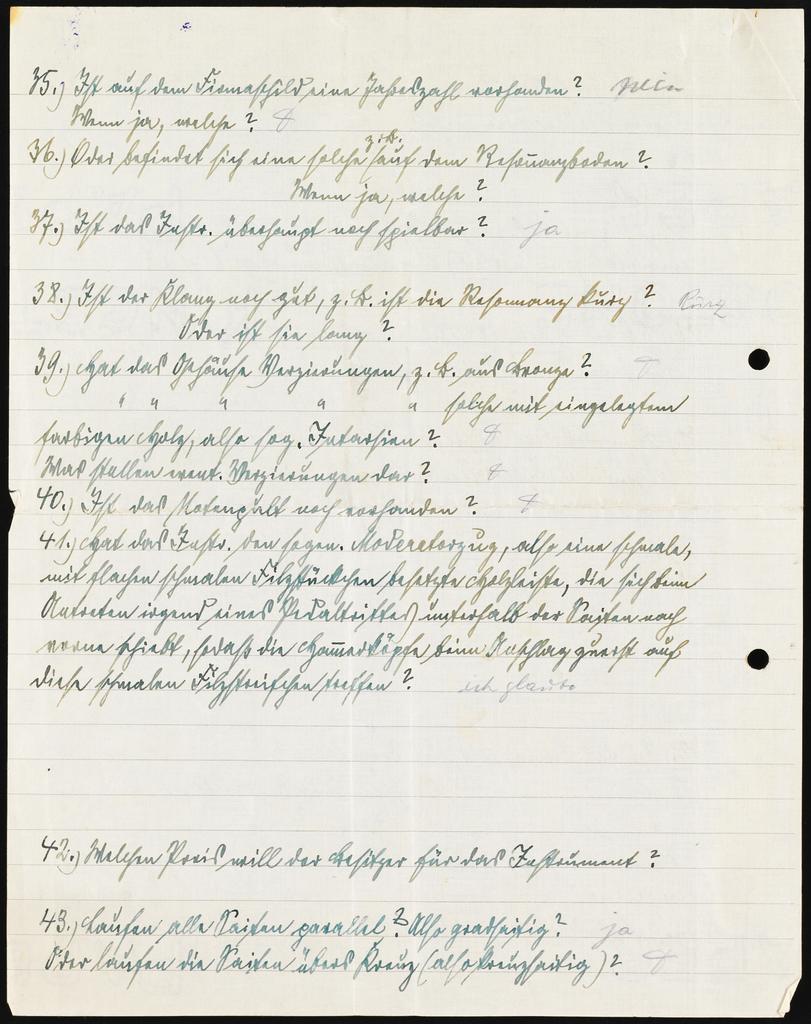 35.) Ist auf dem Firmaschild eine Jahreszahl vorhanden? Nein
Wenn ja, welche?
36.) Oder befindet sich eine solche z.B. auf dem Resonanzboden?
Wenn ja, welche?
37.) Ist das Instr. überhaupt noch spielbar? ja
38.) Ist der Klang noch gut, z. B. ist die Resonnanz kurz? Kurz
Oder ist sie lang?
39.) Hat das Gehäuse Verzierungen, z. B. aus Bronze?
" " " " " solche mit eingelegtem
farbigen Holz, also sog. Intarsien?
Was stellen event. Verzierungen dar?
40.) Ist das Notenpult noch vorhanden?
41.) Hat das Instr. den sogen. Moderatorzug, also eine schmale,
mit flachen schmalen Filzstückchen besetzte Holzleiste, die sich beim
Antreten irgend eines Pedaltrittes unterhalb der Saiten nach
vorne schiebt, sodaß die Hammerköpfe beim Anschlag zuerst auf
diese schmalen Filzstreifchen treffen? ich glaube
42.) Welchen Preis will der Besitzer für das Instrument?
43.) Laufen alle Saiten parallel? Also gradsaitig? ja
Oder laufen die Saiten übers Kreuz (also kreuzsaitig)?